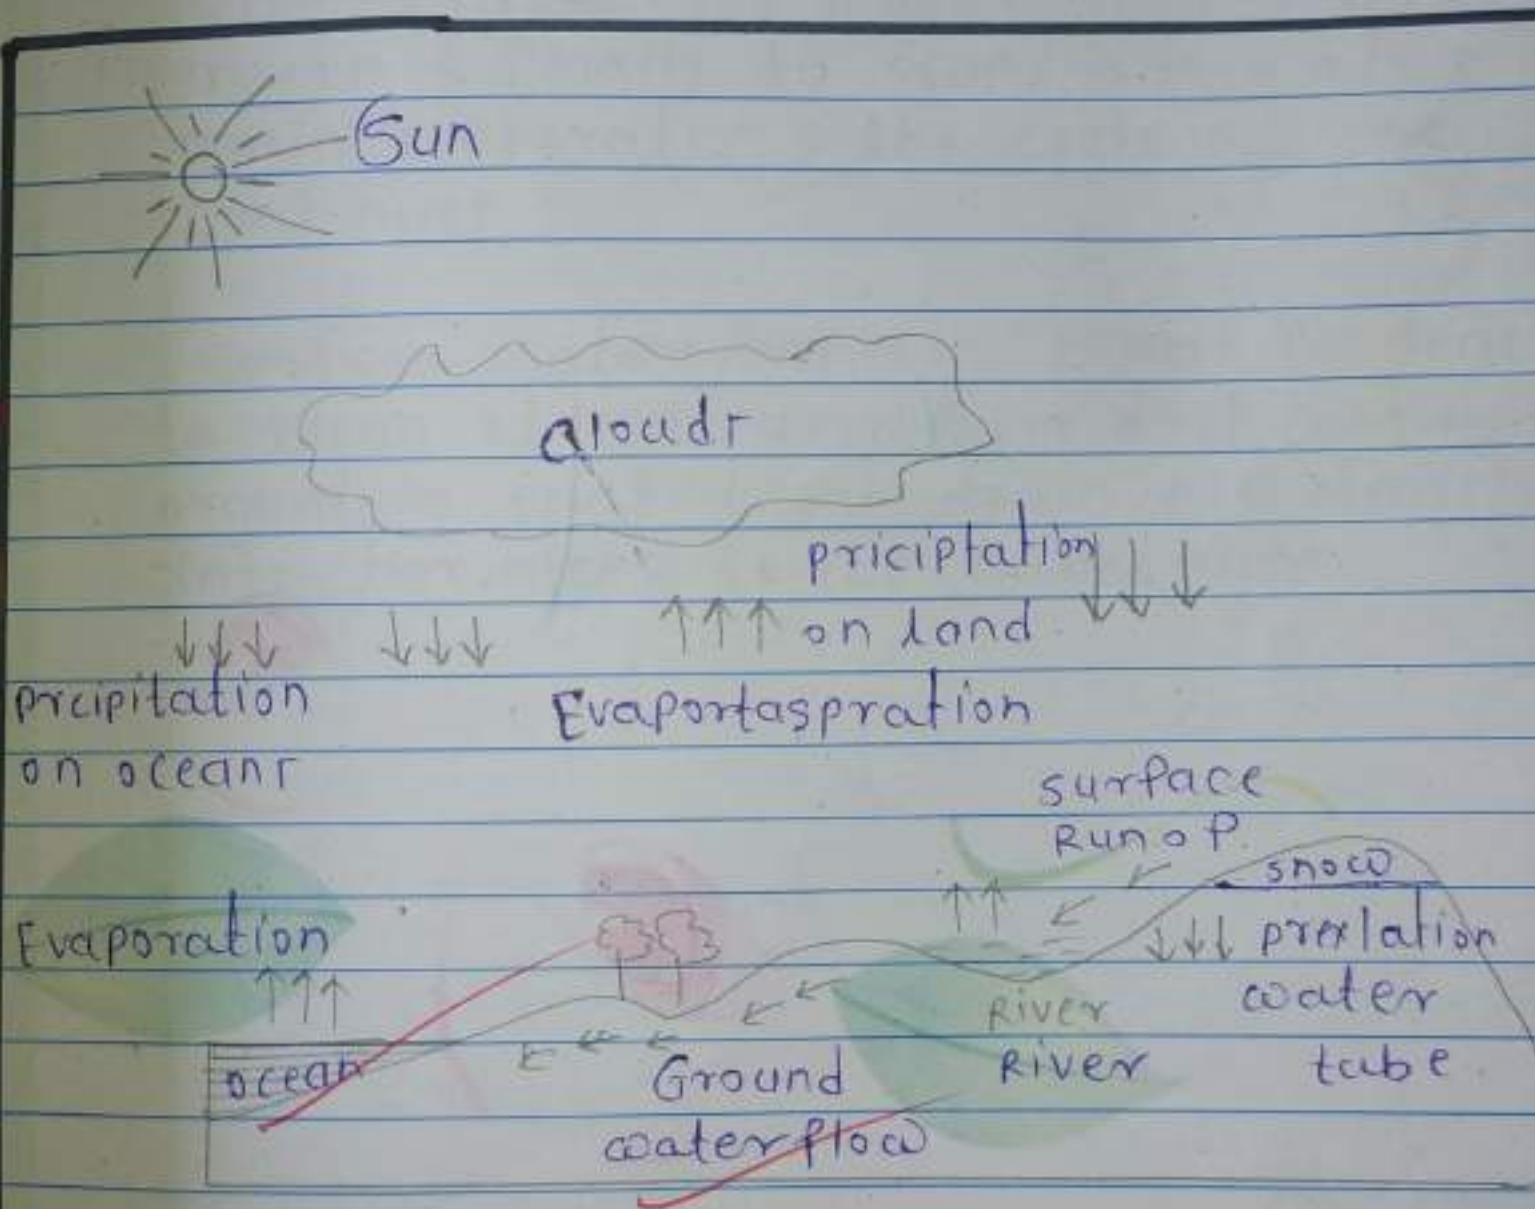 Sun
aloudr
priciptation
on land
prcipitation
on oceanr
Evaportaspration
surface
Runof
snow
Evaporation
prexlation
water
tube
River
River
ocean
Ground
waterflow